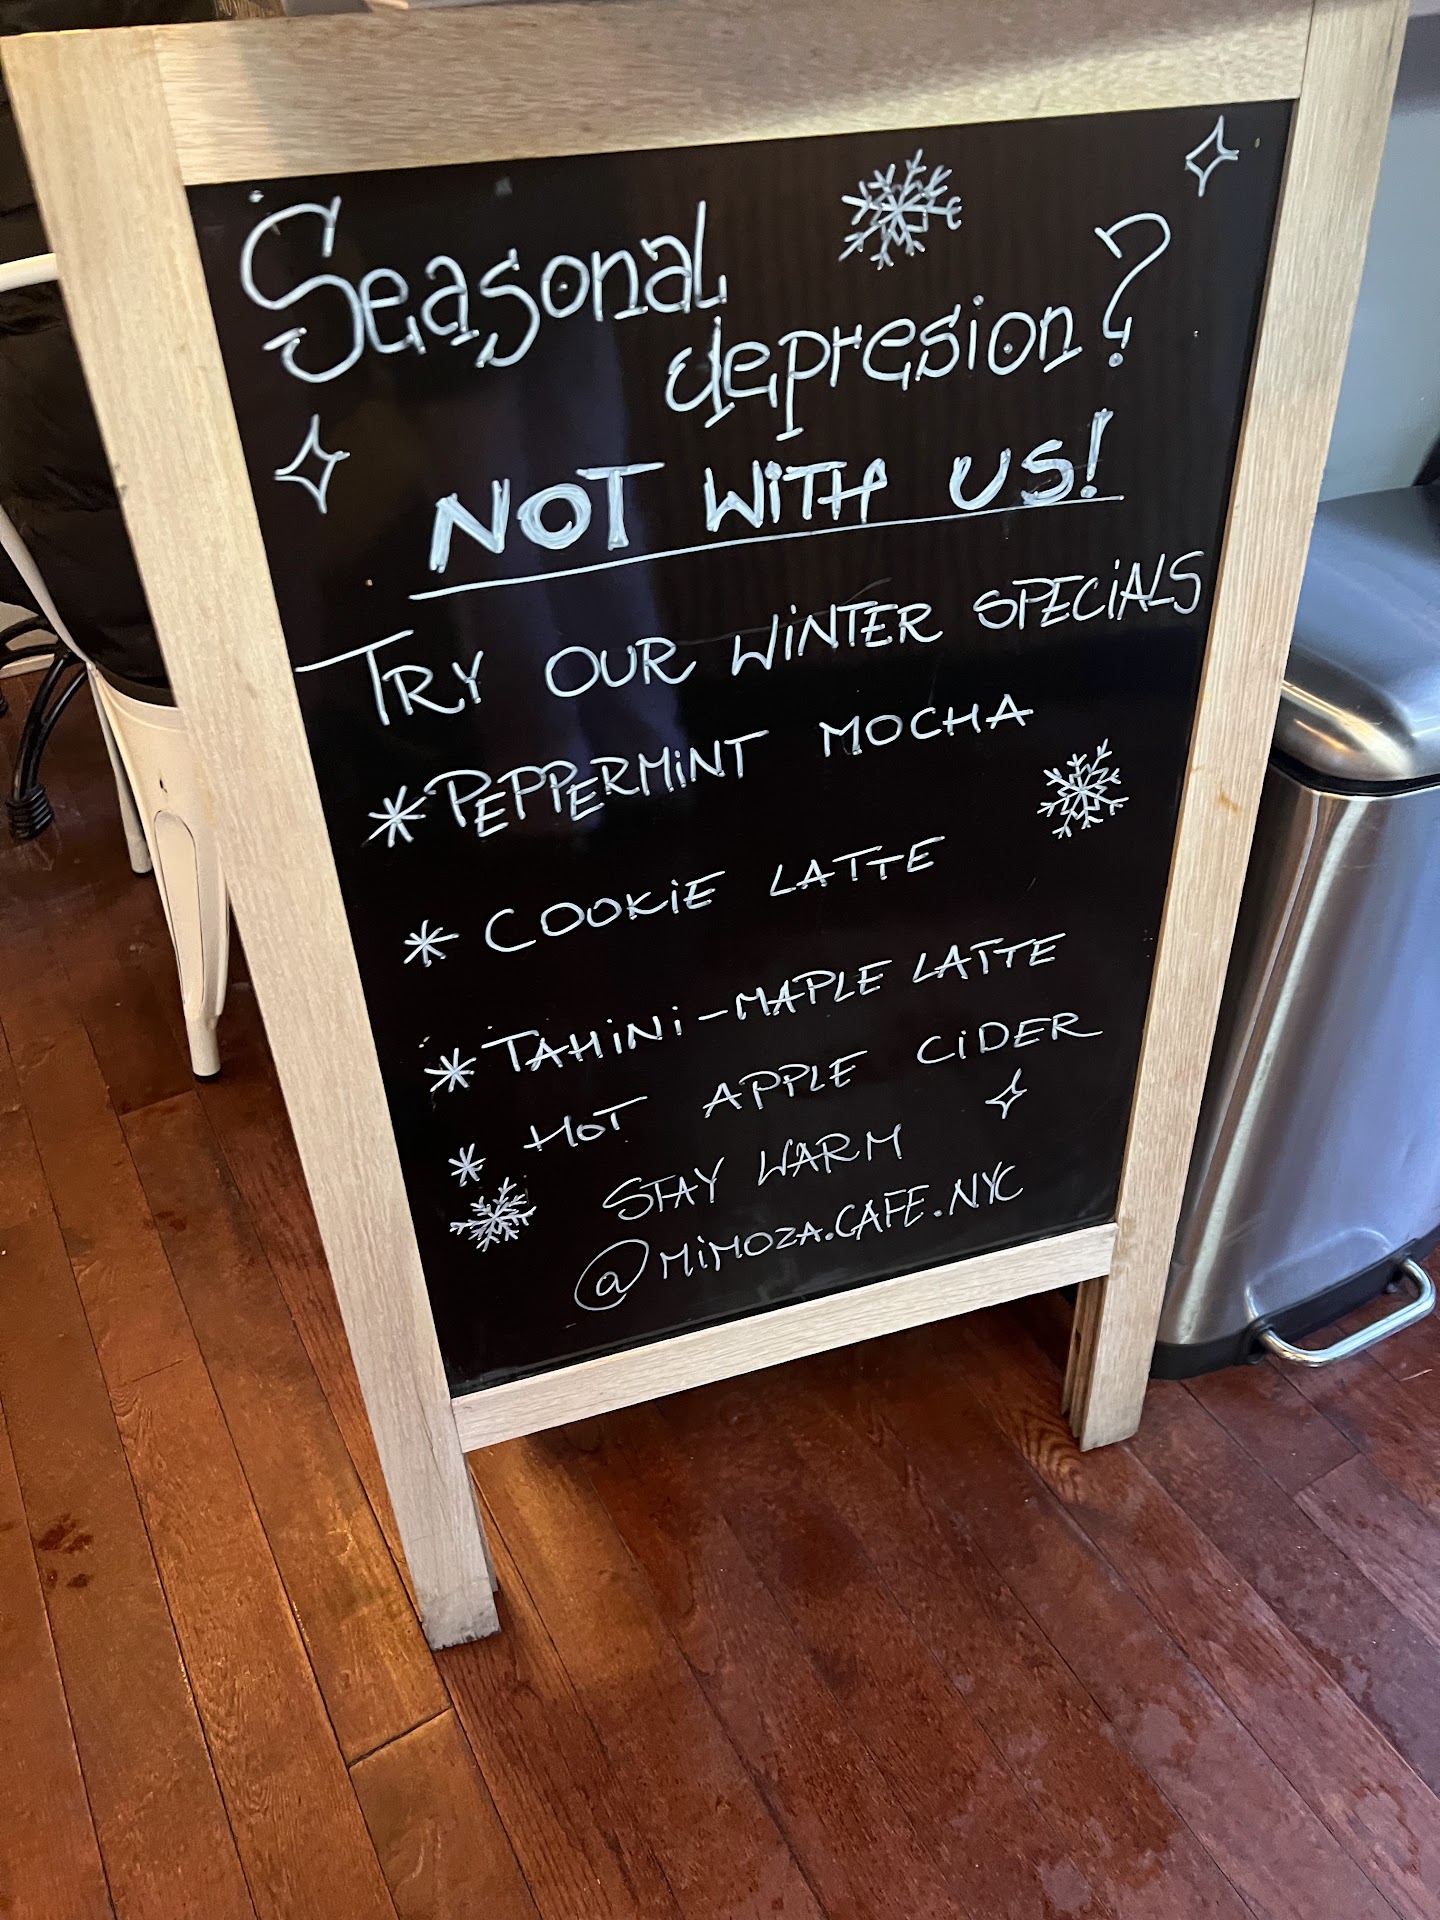 Seasonal
depresion?
NOT WITH US!
TRY OUR WINTER SPECIALS
*PEPPERMINT MOCHA
* COOKIE LATTE
* TAHINI-MAPLE LATTE
* HOT APPLE CIDER
STAY WARM
@MIMOZA.CAFE.NYC